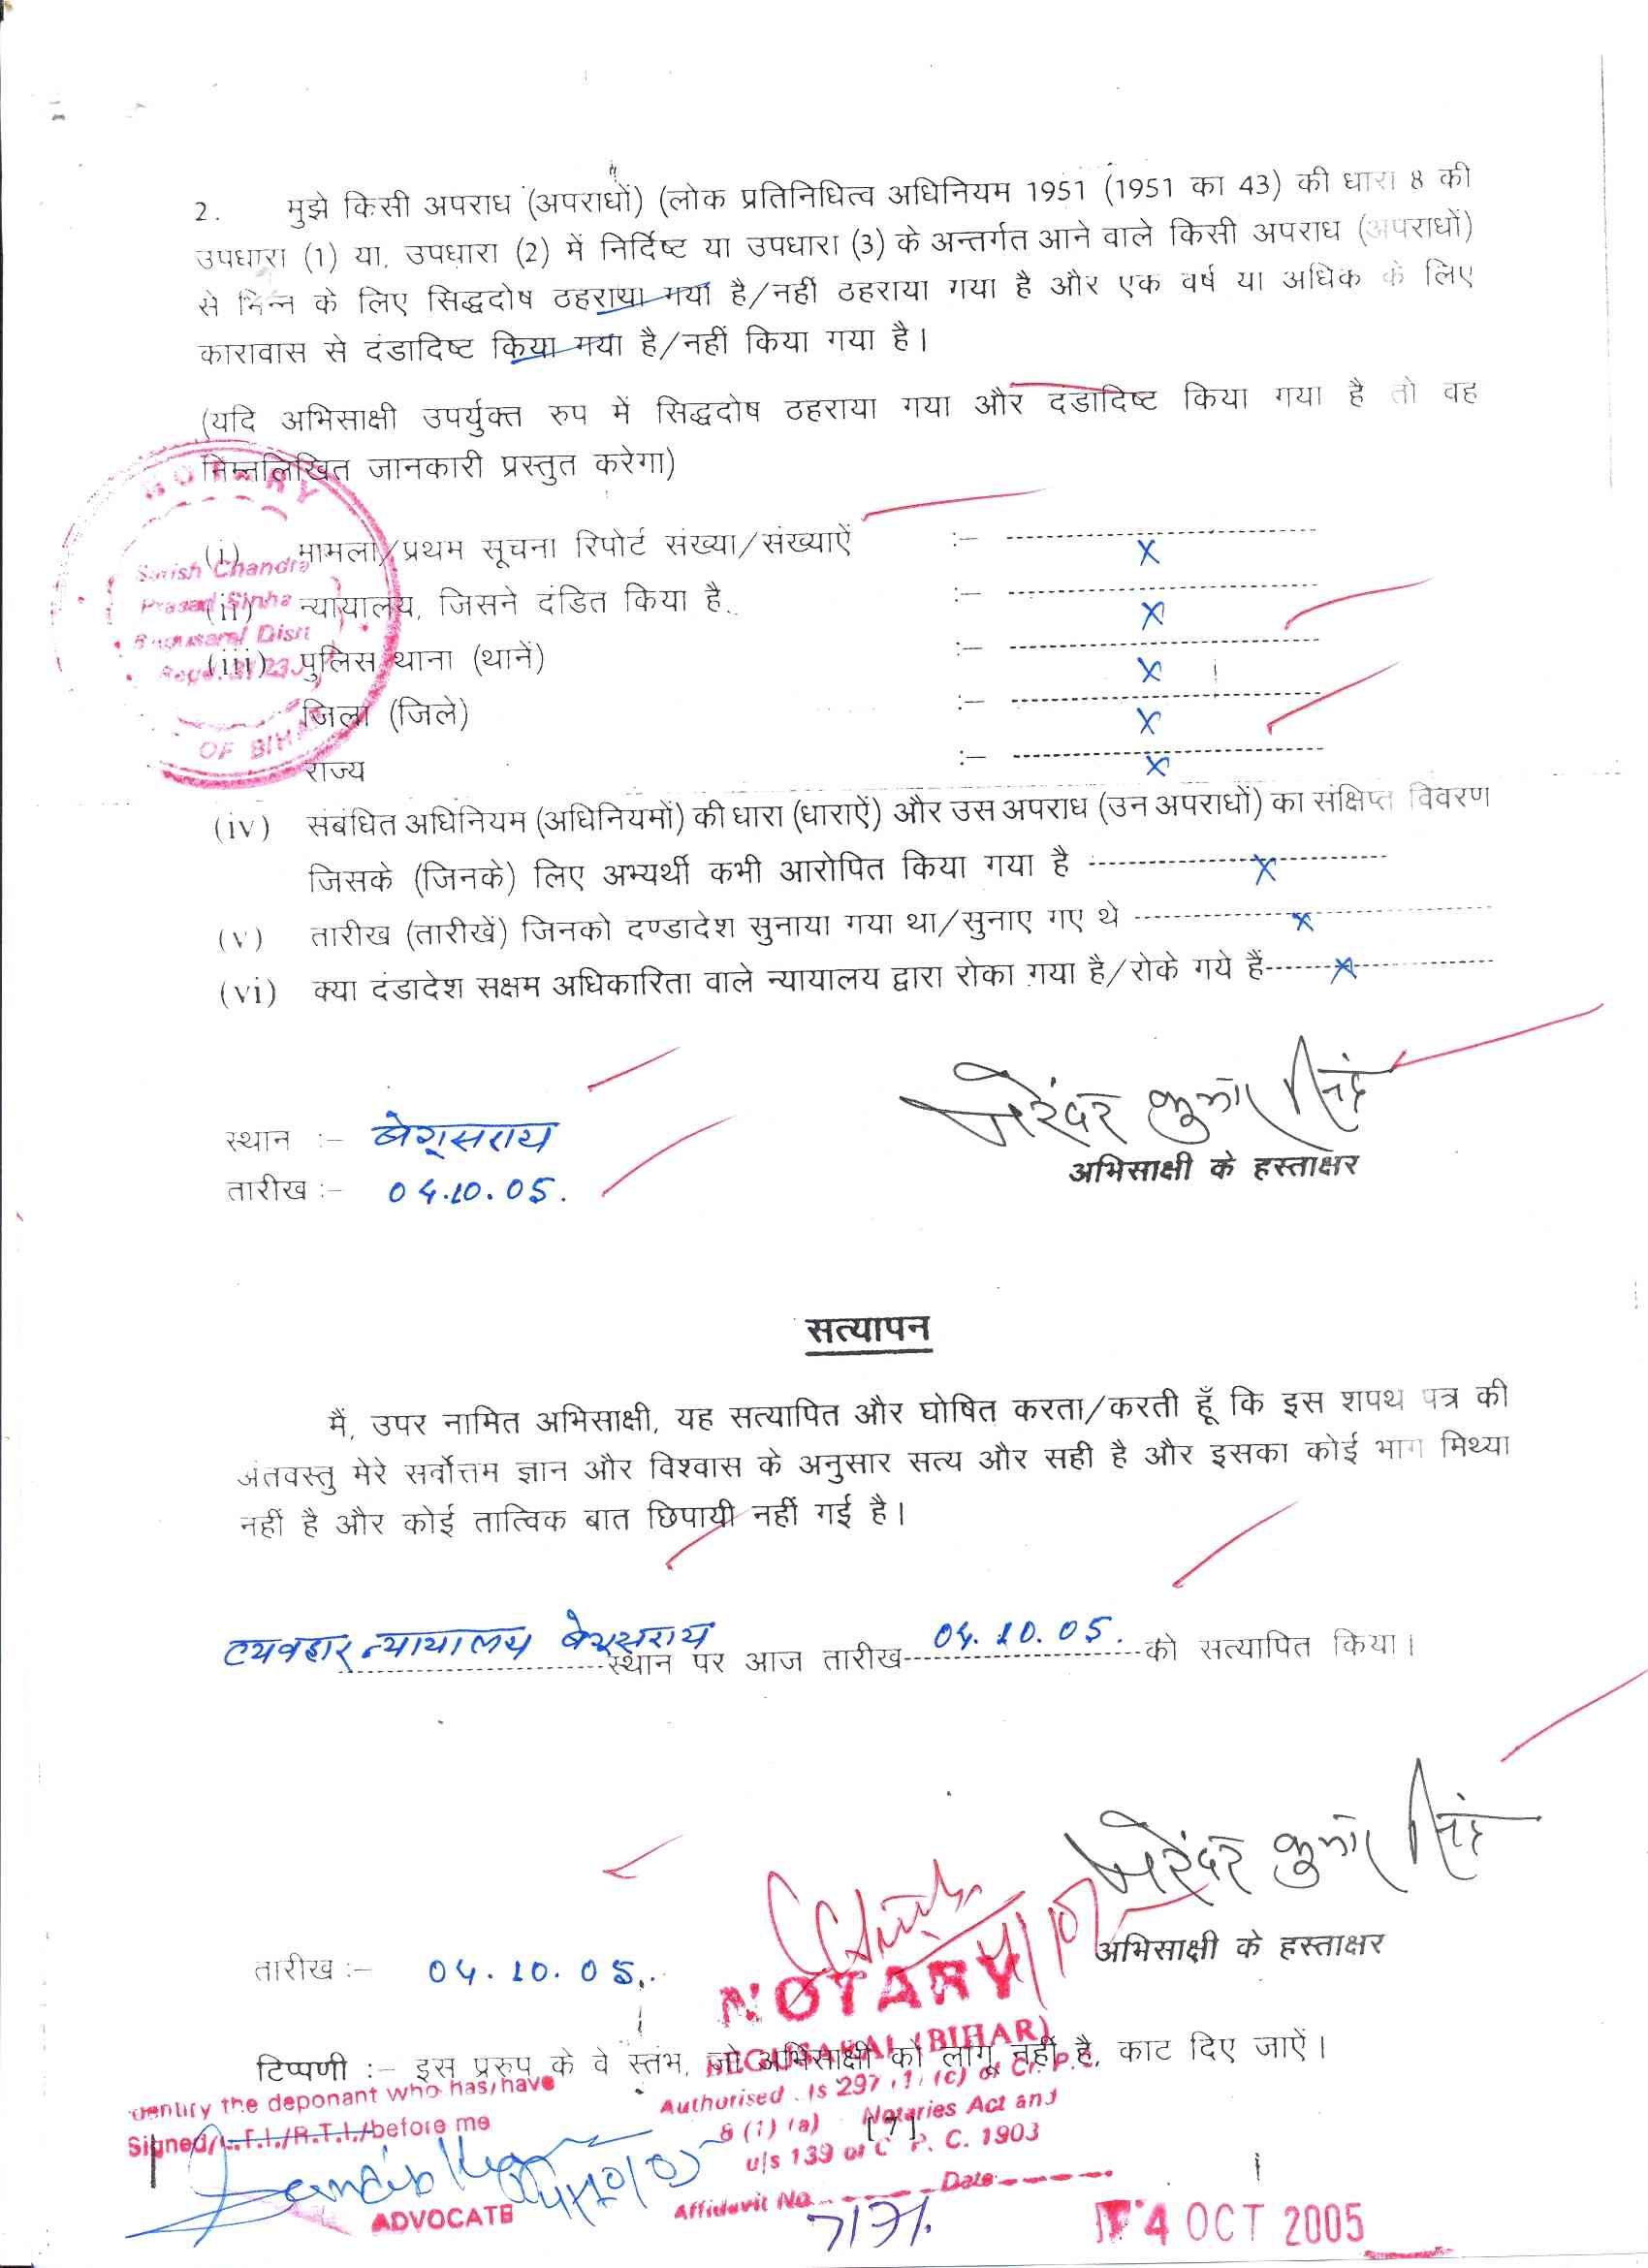 2. मुझे किसी अपराध (अपराधों) (लोक प्रतिनिधित्व अधिनियम 1951 (1951 का 43) की धारा 8 की
उपधारा (1) या, उपधारा (2) में निर्दिष्ट या उपधारा (3) के अन्तर्गत आने वाले किसी अपराध (अपराधों)
से भिन्न के लिए सिद्धदोष ठहराया गया है/नहीं ठहराया गया है और एक वर्ष या अधिक के लिए
कारावास से दंडादिष्ट किया गया है/नहीं किया गया है।
(यदि अभिसाक्षी उपर्युक्त रुप में सिद्धदोष ठहराया गया और दडादिष्ट किया गया है तो वह
निम्नलिखित जानकारी प्रस्तुत करेगा)
NOTARY
Satish Chandra
Prasad Sinha
Begusarai Distt
OF BIHAR
(i) मामला/प्रथम सूचना रिपोर्ट संख्या/संख्याऐं :- X
(ii) न्यायालय, जिसने दंडित किया है. :- X
(iii) पुलिस थाना (थानें) :- X
जिला (जिले) :- X
राज्य :- X
(iv) संबंधित अधिनियम (अधिनियमों) की धारा (धाराऐं) और उस अपराध (उन अपराधों) का संक्षिप्त विवरण
जिसके (जिनके) लिए अभ्यर्थी कभी आरोपित किया गया है ---- X
(v) तारीख (तारीखें) जिनको दण्डादेश सुनाया गया था/सुनाए गए थे ---- X
(vi) क्या दंडादेश सक्षम अधिकारिता वाले न्यायालय द्वारा रोका गया है/रोके गये हैं---- X
नरेंदर कुमार सिंह
स्थान :- बेगूसराय
अभिसाक्षी के हस्ताक्षर
तारीख :- 04.10.05.
सत्यापन
मैं, उपर नामित अभिसाक्षी, यह सत्यापित और घोषित करता/करती हूँ कि इस शपथ पत्र की
अंतवस्तु मेरे सर्वोत्तम ज्ञान और विश्वास के अनुसार सत्य और सही है और इसका कोई भाग मिथ्या
नहीं है और कोई तात्विक बात छिपायी नहीं गई है।
व्यवहार न्यायालय बेगूसराय स्थान पर आज तारीख 04.10.05. को सत्यापित किया।
नरेंदर कुमार सिंह
अभिसाक्षी के हस्ताक्षर
तारीख :- 04.10.05.
NOTARY
BEGUSARAI (BIHAR)
टिप्पणी :- इस प्ररुप के वे स्तंभ, जो अभिसाक्षी को लागू नहीं है, काट दिए जाऐं।
Identify the deponant who has/have
Signed/L.T.I./R.T.I./before me
Authorised u/s 297 (1) (c) of Cr. P.C.
8 (1) (a) Notaries Act and
[7]
u/s 139 of C. P. C. 1903
4/10/05
ADVOCATE
Affidavit No. ---- Date ----
4 OCT 2005